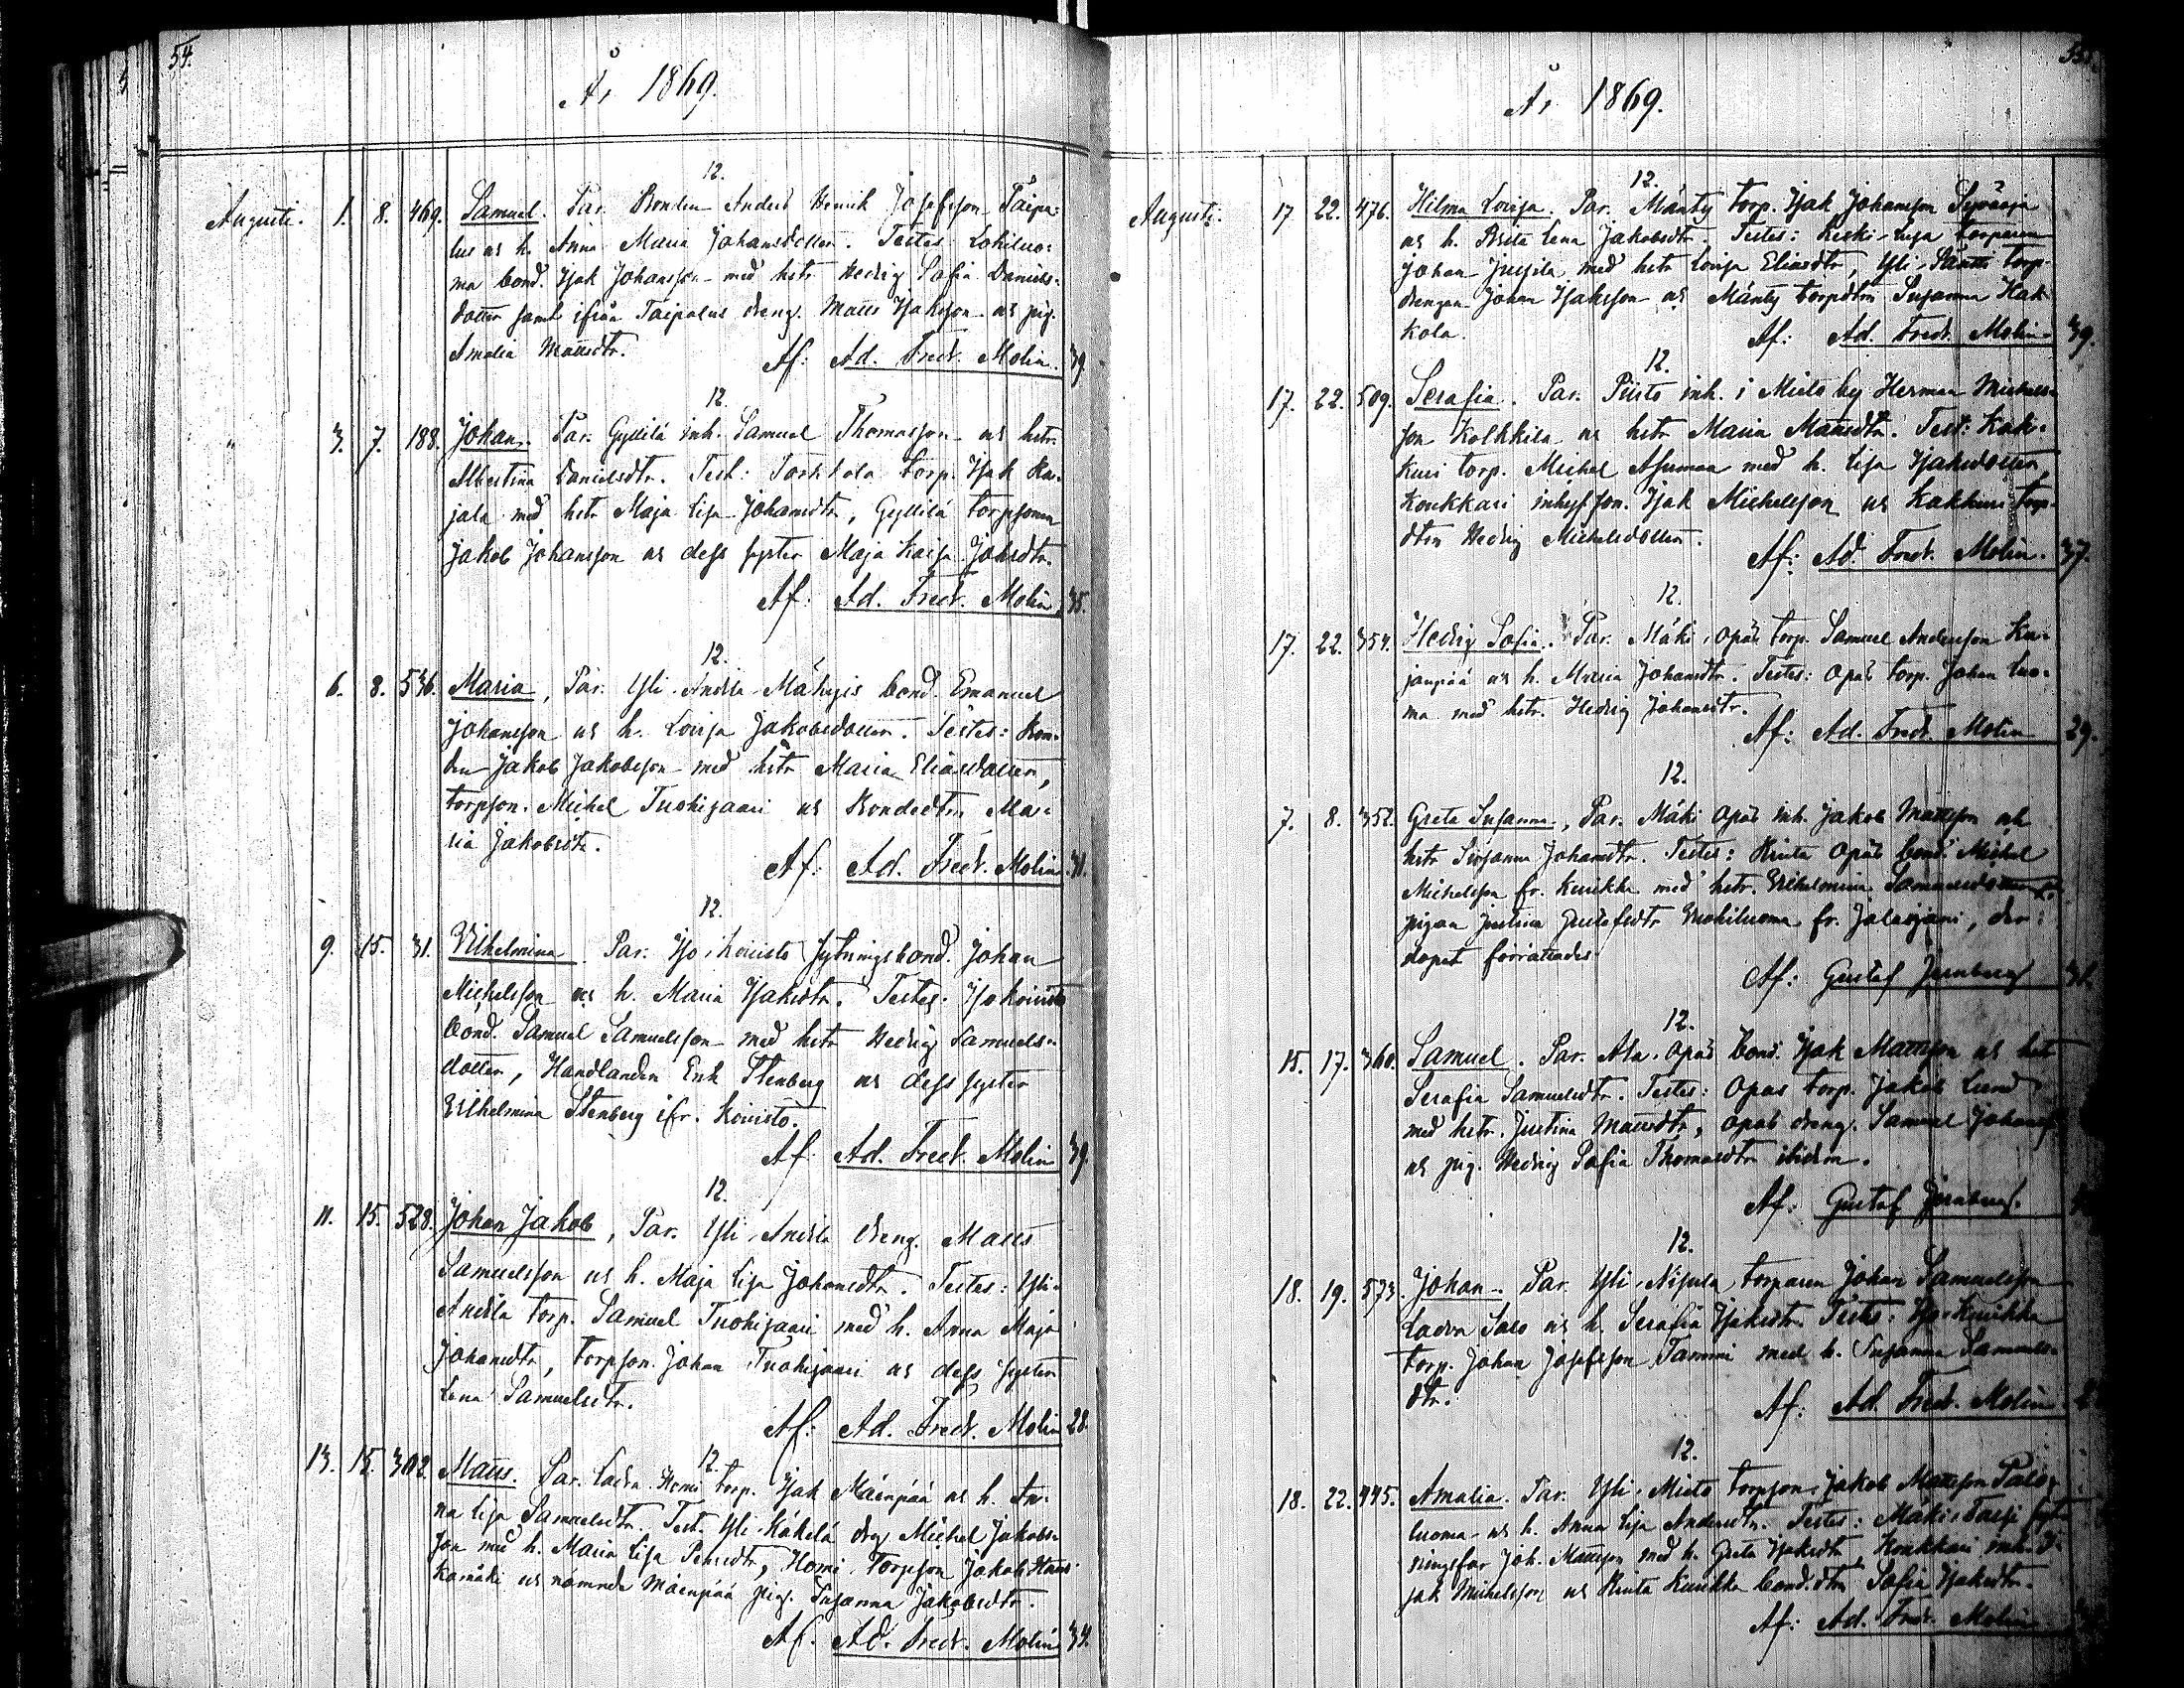 54.
År 1869.
12.
Augusti. 1. 8. 469. Samuel. Par. Bonden Anders Henrik Josefsson Taipa-
lus och h. Anna Maria Johansdotter. Testes: Lohiluo-
ma bond. Isak Johansson med hstr Hedvig Sofia Daniels-
dotter samt ifrån Taipalus dreng. Matts Isaksson och pig.
Amalia Mattsdtr.
Af: Ad. Fredr. Molin. 39.
12.
" 3. 7. 188. Johan. Par. Gyllilä inh. Samuel Thomasson och hstr
Albertina Danielsdtr. Test: torp. Isak Ka-
jala med hstr Maja Lisa Johansdtr, Gyllilä torpsonen
Jakob Johansson och dess syster Maja Kaisa Johsdtr.
Af: Ad. Fredr. Molin. 35.
12.
6. 8. 536. Maria, Par. Yli-Andila Mähyis bond. Emanuel
Johansson och h. Lovisa Jakobsdotter. Testes: Bon-
den Jakob Jakobsson med hstr Maria Eliasdotter,
torpson. Michel Tuohisaari och Bondedtrn Ma-
ria Jakobsdtr.
Af: Ad. Fredr. Molin. 31.
12.
9. 15. 31. Vilhelmina. Par. Iso-Koivisto sytningsbond. Johan
Michelsson och h. Maria Isaksdtr. Testes: Isokoivisto
bond. Samuel Samuelsson med hstr Hedvig Samuels-
dotter, Handlanden Erik Stenberg och dess syster
Vilhelmina Stenberg ifr. Koivisto.
Af: Ad. Fredr. Molin 39.
12.
11. 15. 528. Johan Jakob, Par. Yli-Andila dreng. Matts
Samuelsson och h. Maja Lisa Johansdtr. Testes: Yli-
Andila torp. Samuel Tuohisaari med h. Anna Maja
Johansdtr, torpson. Johan Tuohisaari och dess syster
Lena Samuelsdtr.
Af: Ad. Fredr. Molin 28.
12.
13. 15. 302. Matts. Par. Ladva Homi torp. Isak Mäenpää och h. An-
na Lisa Samuelsdtr. Test. Yli-Käkelä drg Michel Jakobs-
son med h. Maria Lisa, Homi torpson Jakob
och nämnde Mäenpää pig. Susanna Jakobsdtr.
Af: Ad. Fredr. Molin 34.
55.
År 1869.
12.
Augusti. 17. 22. 476. Hilma Lovisa. Par. Mänty torp. Isak Johansson Syväoja
och h. Brita Lena Jakobsdtr. Testes: Keski-Lusa torparen
Johan Jussila med hstr Lovisa Eliasdtr, Yli torp.
drengen Johan Isaksson och Mänty torpdtrn Susanna Kak-
kola.
Af: Ad. Fredr. Molin 39.
12.
17. 22. 509. Serafia. Par. Piisto inh. i Mieto by Herman Michels-
son Kolkkila och hstr Maria Mattsdtr. Test: Kak-
kuri torp. Michel Asumaa med h. Lisa Isaksdotter,
Koukkari inhysson. Isak Michelsson och Kakkuri torp-
dtrn Hedvig Michelsdotter.
Af: Ad. Fredr. Molin. 37.
12.
17. 22. 354. Hedvig Sofia. Par. Mäki-Opas torp. Samuel Andersson Ka-
janpää och h. Maria Johansdtr. Testes: Opas torp. Johan Luo-
ma med hstr. Hedvig Johansdtr.
Af: Ad. Fredr. Molin 29.
12.
7. 8. 352. Greta Susanna, Par. Mäki Opas inh. Jakob Mattsson och
hstr Susanna Johansdtr. Testes: Rinta Opas bond. Michel
Michelsson fr. Kurikka med hstr. Vilhelmina
pigan Justina Gustafsdtr fr. Jalasjärvi, der
dopet förrättades.
Af: Gustaf
12.
15. 17. 360. Samuel. Par. Ala-Opas Bond. Isak Mattsson och hstr
Serafia Samuelsdtr. Testes: Opas torp. Jakob Lund
med hstr. Justina Mattsdtr, Opas dreng. Samuel Johansson
och pig. Hedvig Sofia Thomasdtr ibidem.
Af: Gustaf
12.
18. 19. 573. Johan. Par. Yli-Nisula torparen Johan Samuelsson
Ladva Salo och h. Serafia Isaksdtr. Testes: Iso-Kurikka
torp. Johan Josefsson Tammi med h. Susanna Samuels-
dtr.
Af: Ad. Fredr. Molin
12.
18. 22. 445. Amalia. Par. Yli-Mieto torpson. Jakob Mattsson Palo-
luoma och h. Anna Lisa Andersdtr. Testes: Mäki-
ningsfar Joh. Mattsson med h. Greta Isaksdtr Koukkari inh. I-
sak Michelsson och Rinta Kurikka bond.dtrn Sofia Isaksdtr.
Af: Ad. Fredr. Molin